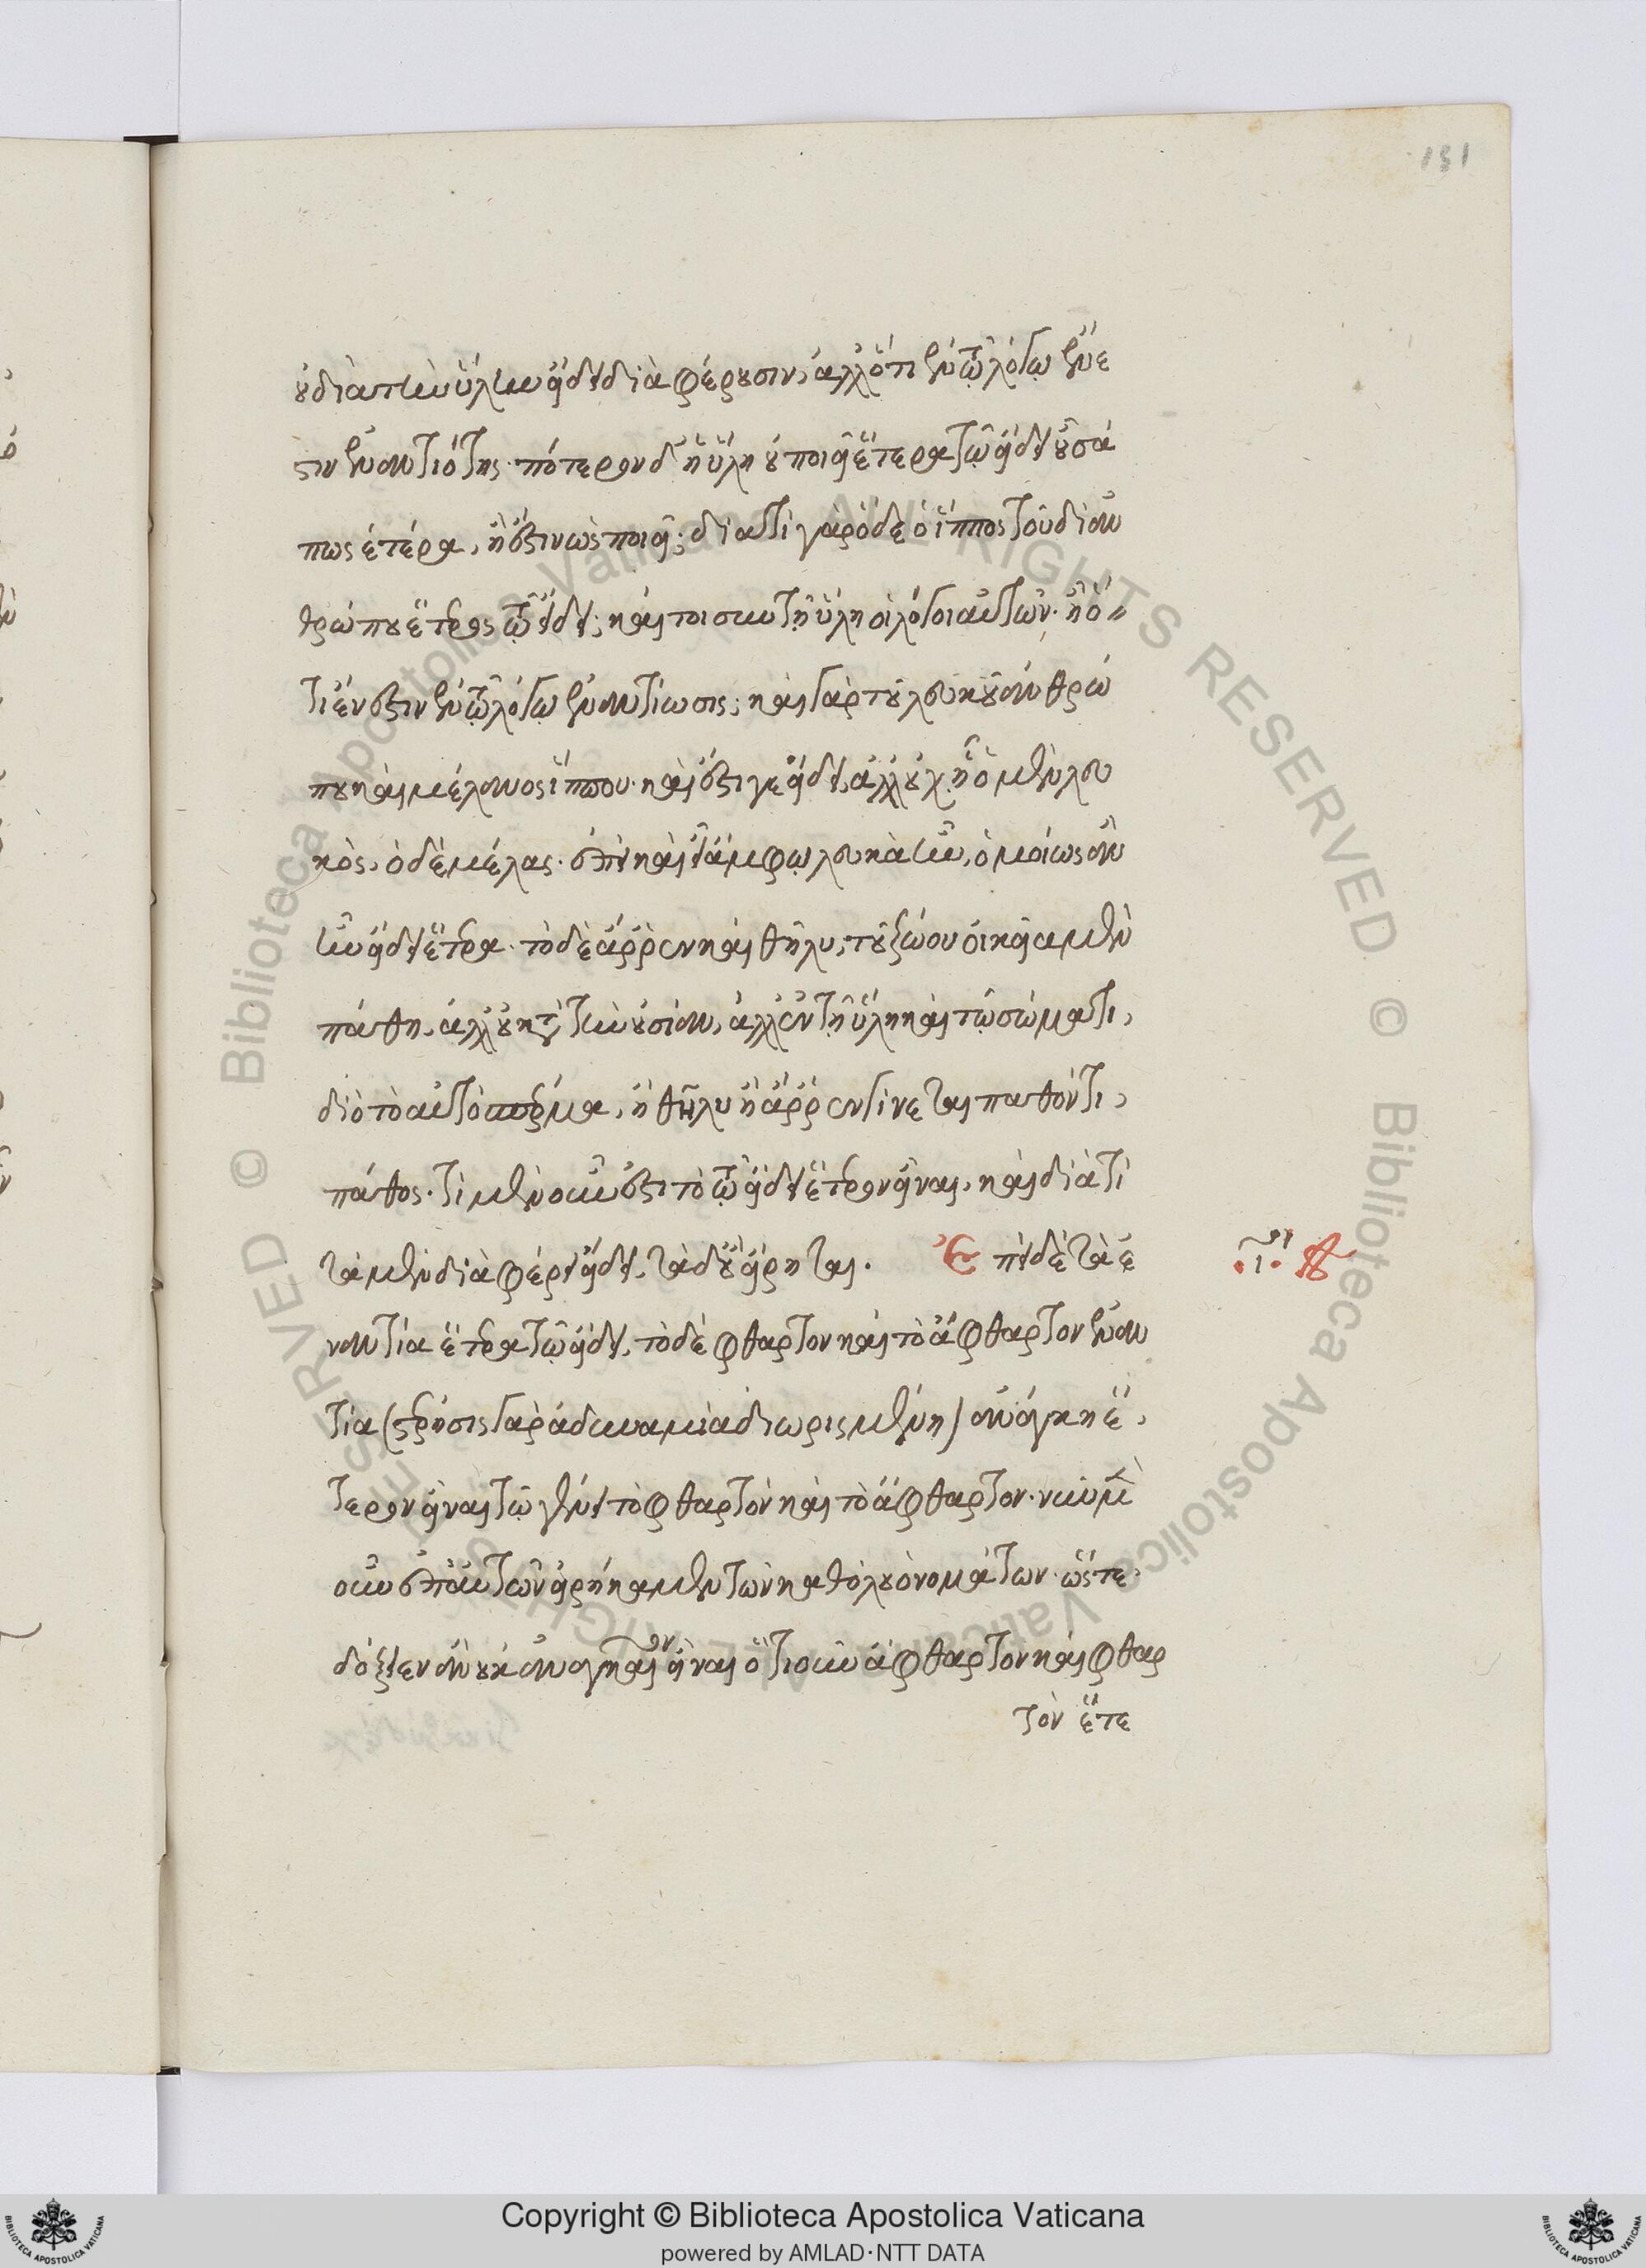 οὐ διὰ τὴν ὕλην εἴδει διαφέρουσιν, ἀλλ' ὅτι ἐν τῷ λόγῳ ἔνε
στιν ἐναντιότης. πότερον δ' ἡ ὕλη οὐ ποιεῖ ἕτερα τῷ εἴδει οὖσά
πως ἑτέρα, ἢ ἔστιν ὡς ποιεῖ; διατί γὰρ ὅδε ὁ ἵππος τοῦδι ἀν
θρώπου ἕτερος τῷ εἴδει; καίτοι σὺν τῇ ὕλῃ οἱ λόγοι αὐτῶν. ἢ ὅ
τι ἔνεστιν ἐν τῷ λόγῳ ἐναντίωσις; καὶ γὰρ τοῦ λευκοῦ ἀνθρώ
που καὶ μέλανος ἵππου. καὶ ἔστι γε εἴδει, ἀλλ' οὐχ ᾗ ὁ μὲν λευ
κὸς, ὁ δὲ μέλας. ἐπεὶ καὶ εἰ ἄμφω λευκὰ ἦν, ὁμοίως ἂν
ἦν εἴδει ἕτερα. τὸ δὲ ἄῤῥεν καὶ θῆλυ, τοῦ ζώου οἰκεῖα μὲν
πάθη, ἀλλ' οὐ κατὰ τὴν οὐσίαν, ἀλλ' ἐν τῇ ὕλῃ καὶ τῷ σώματι,
διὸ τὸ αὐτὸ σπέρμα, ἢ θῆλυ ἢ ἄῤῥεν γίνεται παθόν τι,
πάθος. τί μὲν οὖν ἐστι τὸ τῷ εἴδει ἕτερον εἶναι, καὶ διὰ τί
τὰ μὲν διαφέρει εἴδει, τὰ δ' οὒ εἴρηται. Ἐπεὶ δὲ τὰ ἐ
ναντία ἕτερα τῷ εἴδει, τὸ δὲ φθαρτὸν καὶ τὸ ἄφθαρτον ἐναν
τία (στέρησις γὰρ ἀδυναμία διωρισμένη) ἀνάγκη ἕ
τερον εἶναι τῷ γένει τὸ φθαρτὸν καὶ τὸ ἄφθαρτον. νῦν μὲν
οὖν ἐπ' αὐτῶν εἰρήκαμεν τῶν καθόλου ὀνομάτων. ὥστε
δόξειεν ἂν οὐκ ἀναγκαῖον εἶναι ὁτιοῦν ἄφθαρτον καὶ φθαρ
τὸν ἕτε